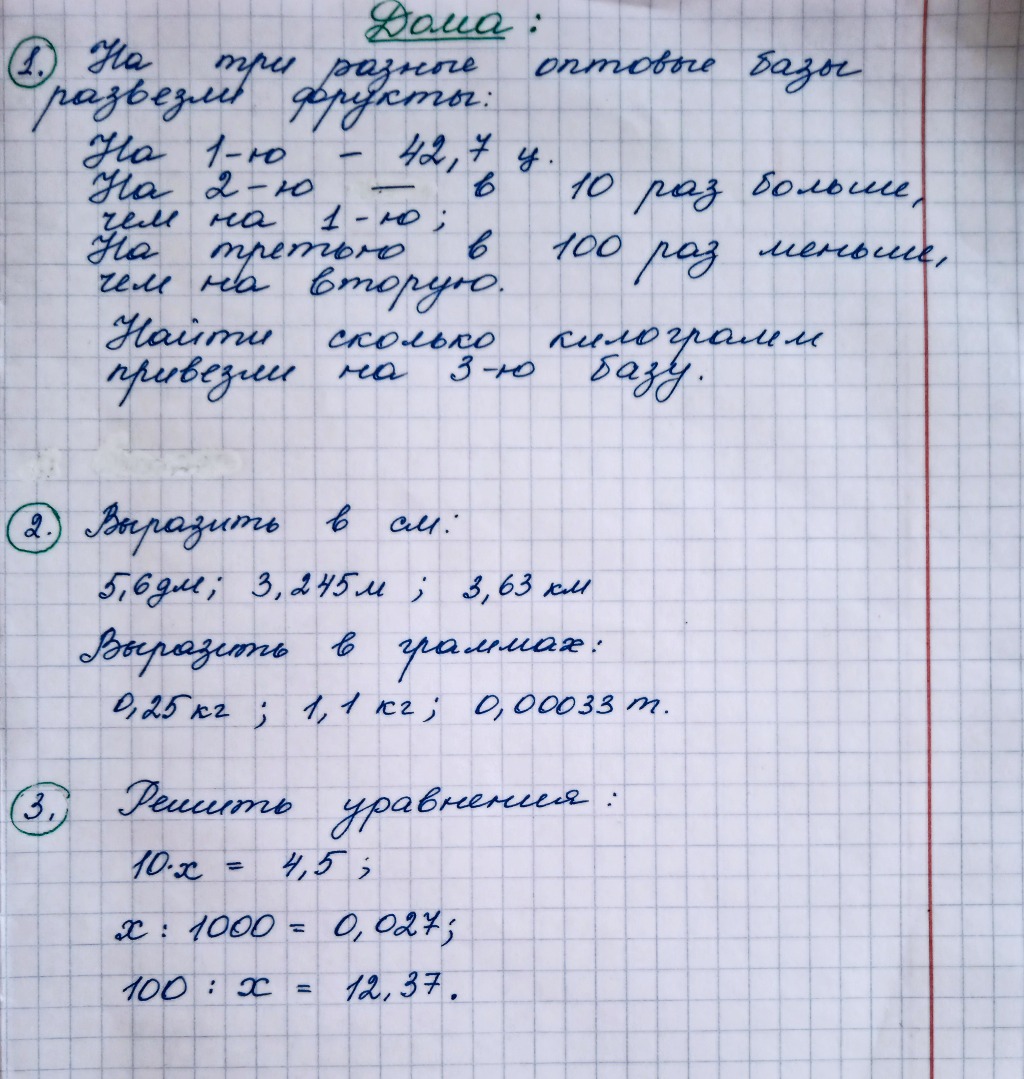 Дома:
1. На три разные оптовые базы
развезли фрукты:
На 1-ю - 42,7 ц.
На 2-ю — в 10 раз больше,
чем на 1-ю;
На третью в 100 раз меньше,
чем на вторую.
Найти сколько килограмм
привезли на 3-ю базу.
2. Выразить в см:
5,6дм; 3,245м ; 3,63 км
Выразить в граммах:
0,25 кг ; 1,1 кг; 0,00033 т.
3. Решить уравнения:
10·х = 4,5 ;
х : 1000 = 0,027;
100 : х = 12,37.